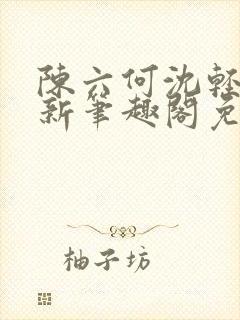 陳六何沈輕
新筆趣閣免
柚子坊